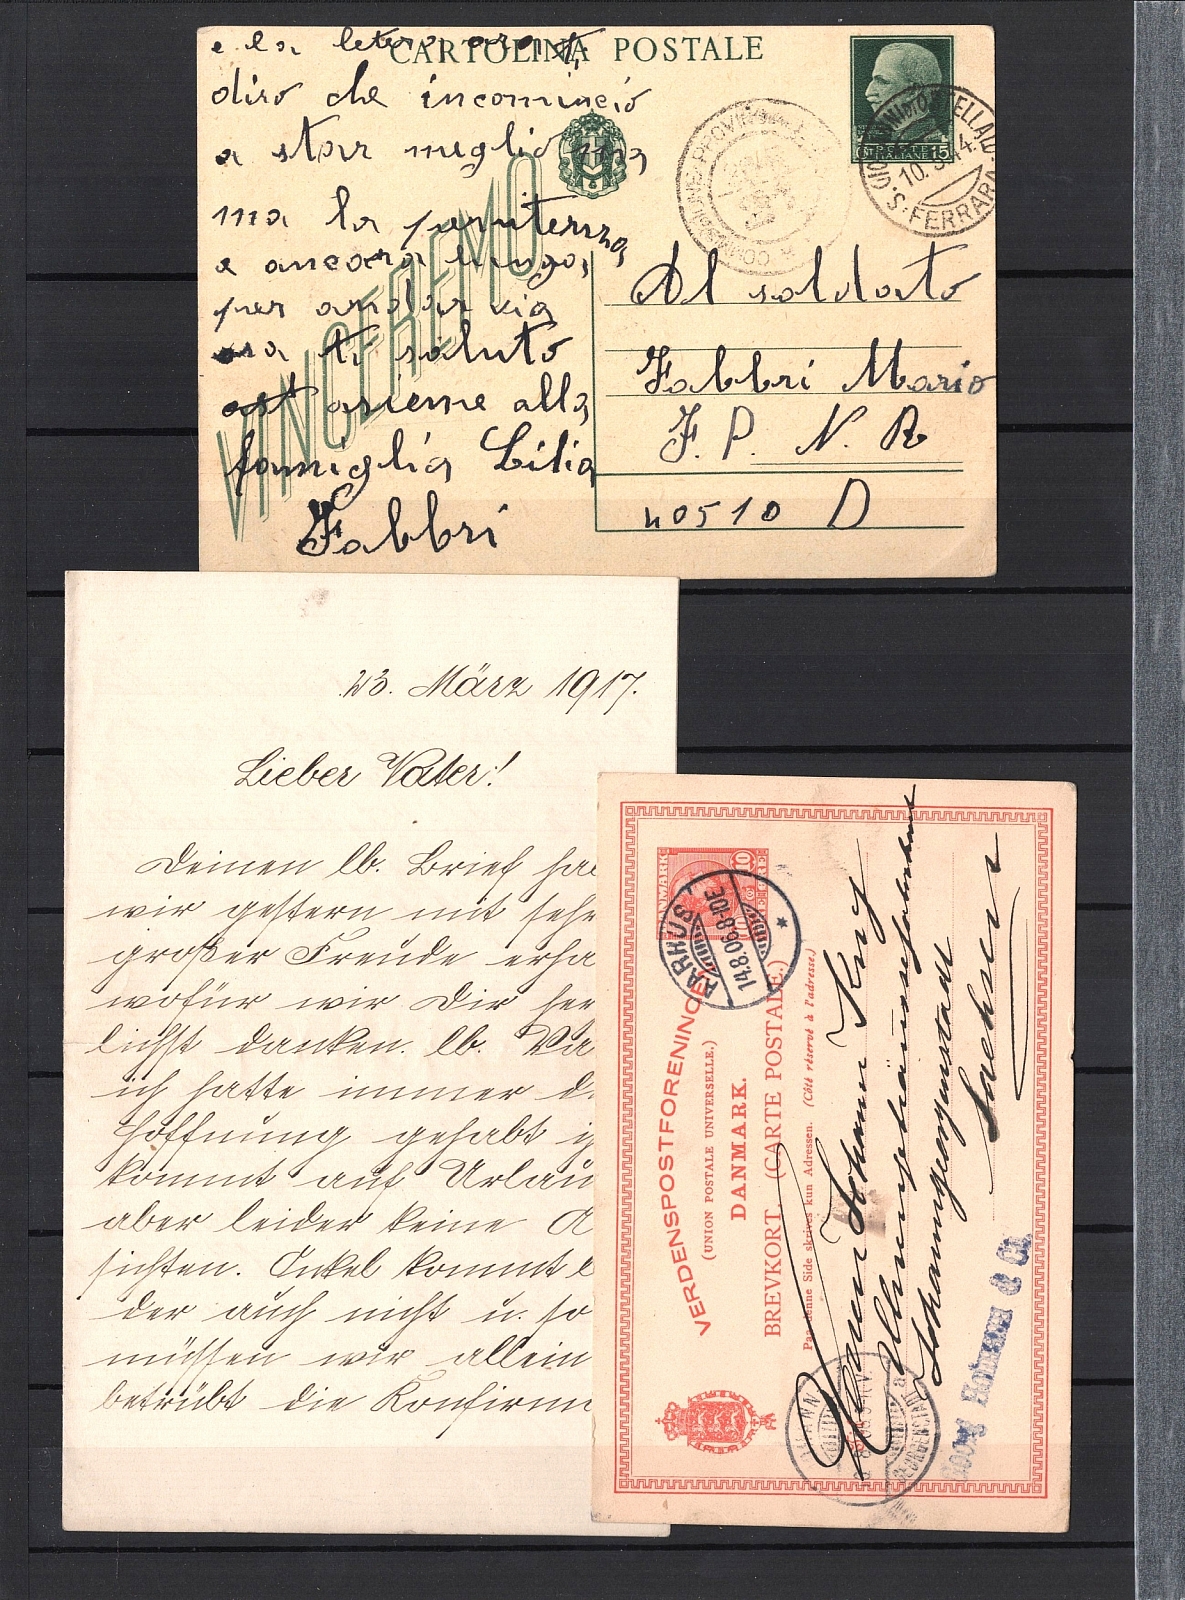 CARTOLINA POSTALE
e la
diro che incomincio
a star meglio ma
ma la
e ancora lunga,
per andar via
ora ti saluto
asieme alla
famiglia Lilia
Fabbri
VINCEREMO
POSTE
ITALIANE 15
10.
S. FERRARA
Al soldato
Fabbri Mario
F. P. N. R
40510 D
23. März 1917.
Lieber Vater!
Deinen lb. Brief ha
wir gestern mit seh
großer Freude erha
wofür wir Dir her
lichst danken. lb. Va
ich hatte immer d
Hoffnung gehabt
kommt auf Urlau
aber leider keine A
sichten. Onkel kommt l
der auch nicht u. so
müssen wir allein
betrübt die Konfirm
DANMARK
10
ØRE
AARHUS
14.8.06.8-10E
VERDENSPOSTFORENINGEN
(UNION POSTALE UNIVERSELLE.)
DANMARK.
BREVKORT. (CARTE POSTALE.)
Paa denne Side skrives kun Adressen. (Côté réservé à l'adresse)
Herrn Johann Krug
Johanngeorgenstadt
Sachsen